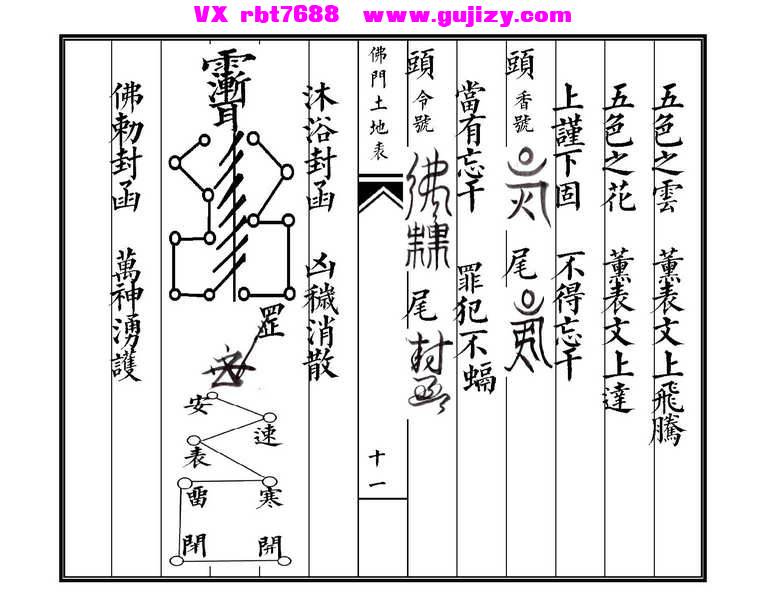 VX rbt7688 www.gujizy.com
五色之雲 薰表文上飛騰
五色之花 薰表文上達
上謹下固 不得忘干
頭 香號 尾
當有忘干 罪犯不蝠
頭 令號 尾
佛門土地表
十一
沐浴封函 凶穢消散
罡
安
速
表
雷
寒
閉
開
佛勅封函 萬神湧護